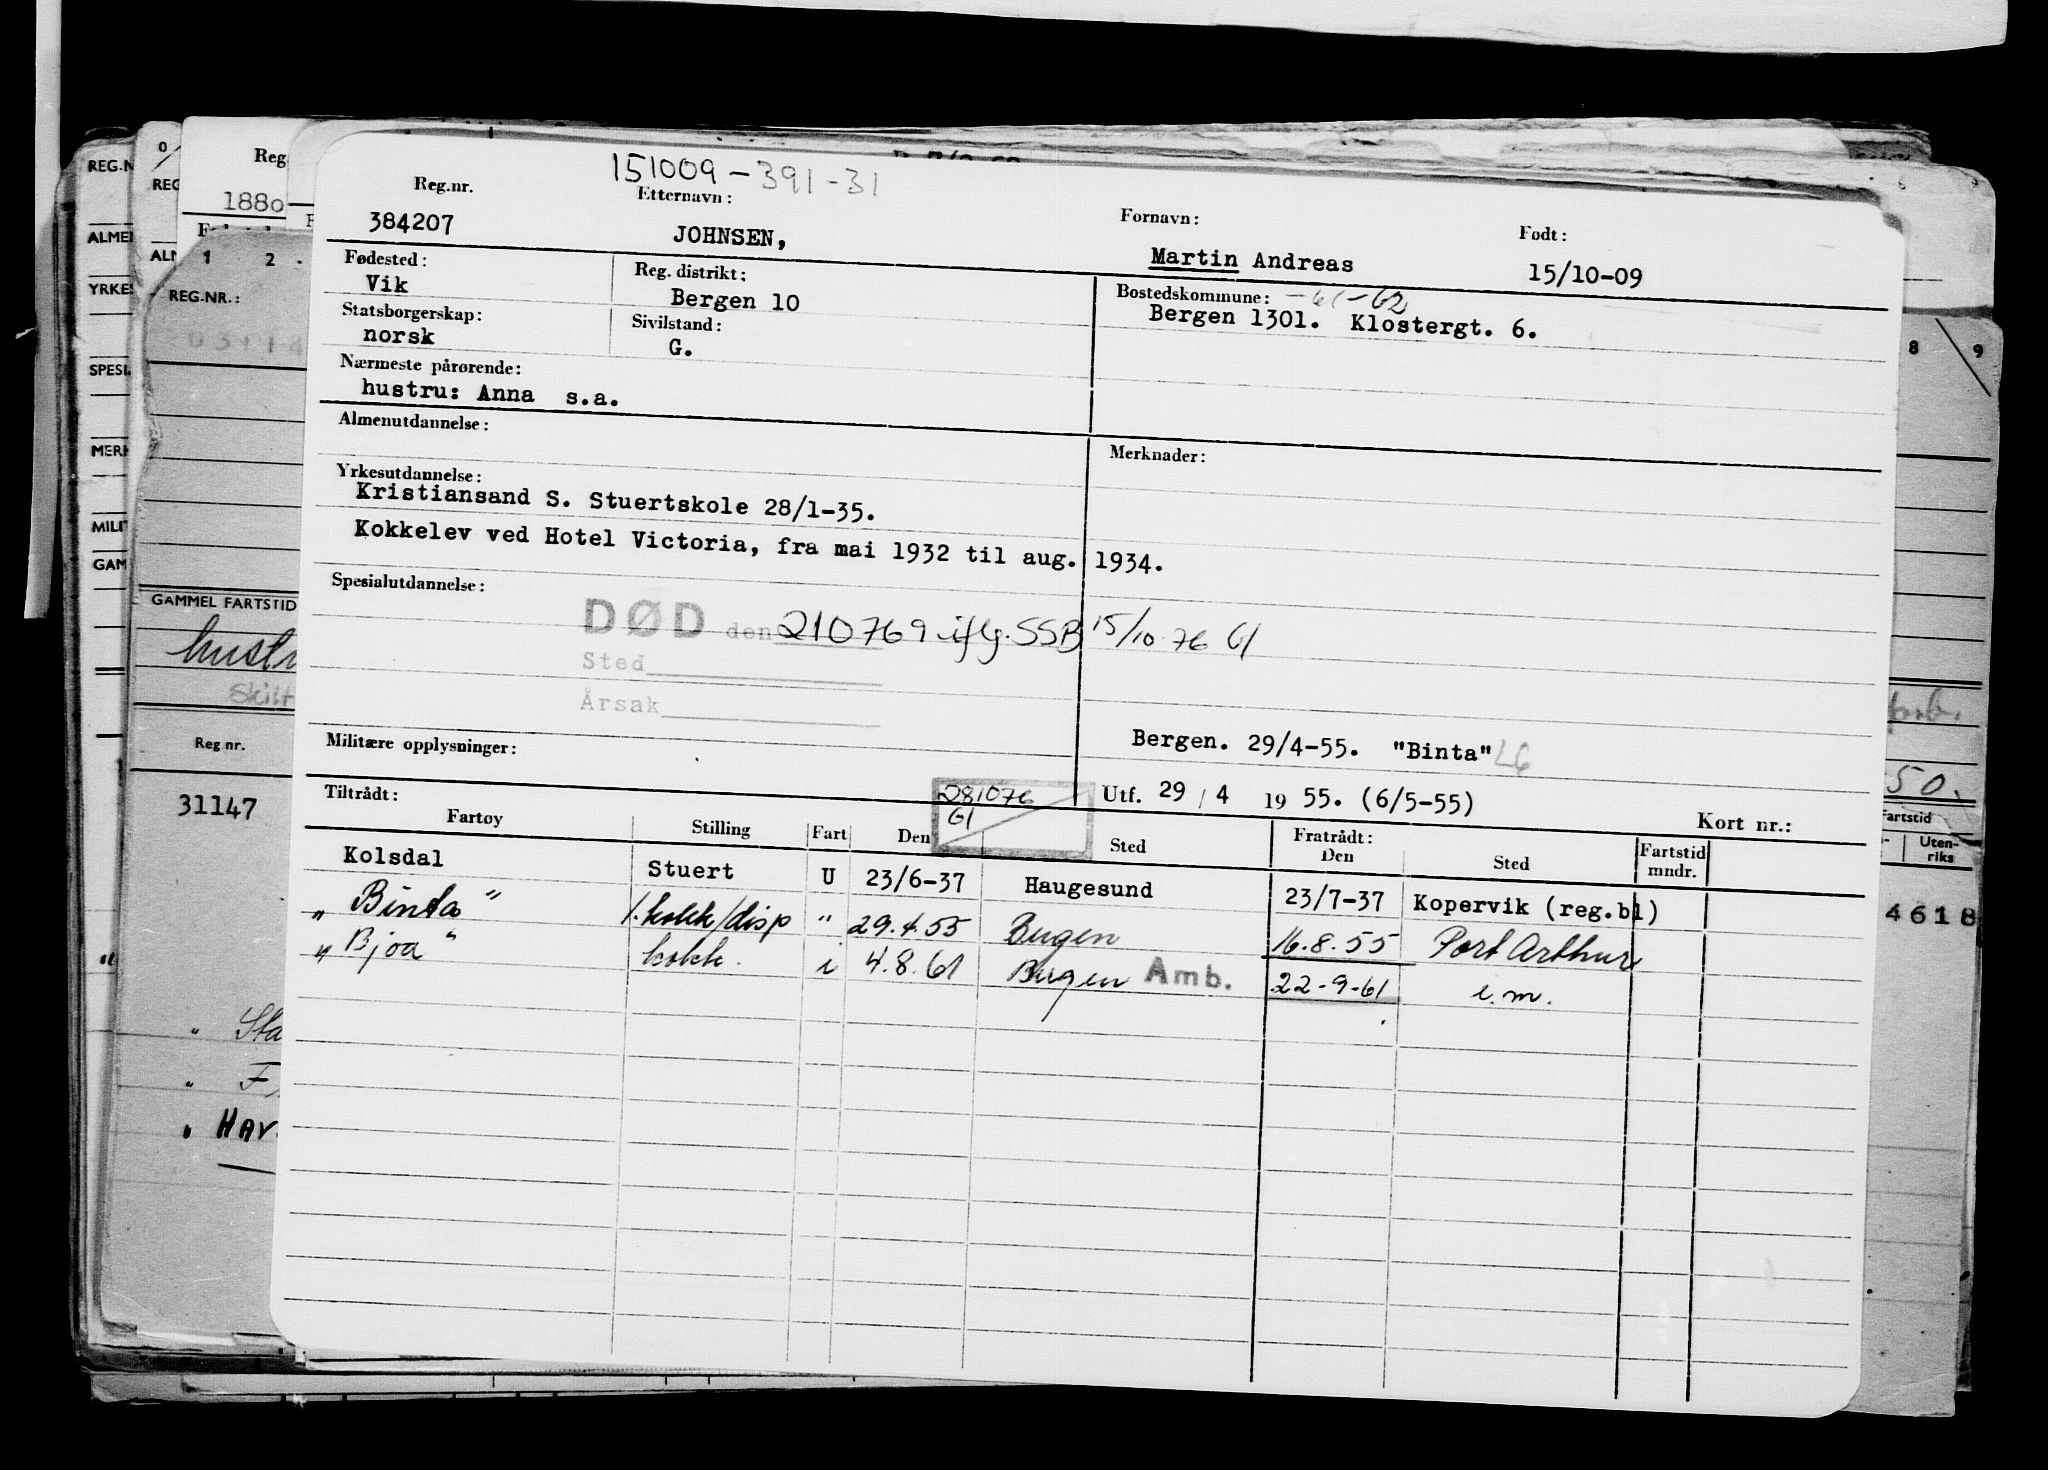 151009-391-31
Reg.nr. Etternavn: Fornavn: Født:
384207 JOHNSEN, Martin Andreas 15/10-09
Fødested: Reg. distrikt: Bostedskommune: -61-62
Vik Bergen 10 Bergen 1301. Klostergt. 6.
Statsborgerskap: Sivilstand:
norsk G.
Nærmeste pårørende:
hustru: Anna s.a.
Almenutdannelse: Merknader:
Yrkesutdannelse:
Kristiansand S. Stuertskole 28/1-35.
Kokkelev ved Hotel Victoria, fra mai 1932 til aug. 1934.
Spesialutdannelse:
DØD den 210769 iflg. SSB 15/10 76 Gl
Sted
Årsak
Militære opplysninger: Bergen. 29/4-55. "Binta" LG
281076
Gl
Utf. 29/4 1955. (6/5-55)
Tiltrådt: Fratrådt: Kort nr.:
Fartøy Stilling Fart Den Sted Den Sted Fartstid mndr.
Kolsdal Stuert U 23/6-37 Haugesund 23/7-37 Kopervik (reg.bl)
" Binta " 1.kokk/disp " 29.4.55 Bergen 16.8.55 Port Arthur
" Bjoa " kokk. i 4.8.61 Bergen Amb. 22-9-61 i.m.
REG.N
ALMEN
YRKES
SPESI
MERK
MILIT
GAM
Reg.
1880
1 2
REG.NR.:
GAMMEL FARTSTID
hustr
Skilt
Reg nr.
31147
" Sta
" F
" HAV
8 9
50.
Fartstid
Uten-
riks
4618